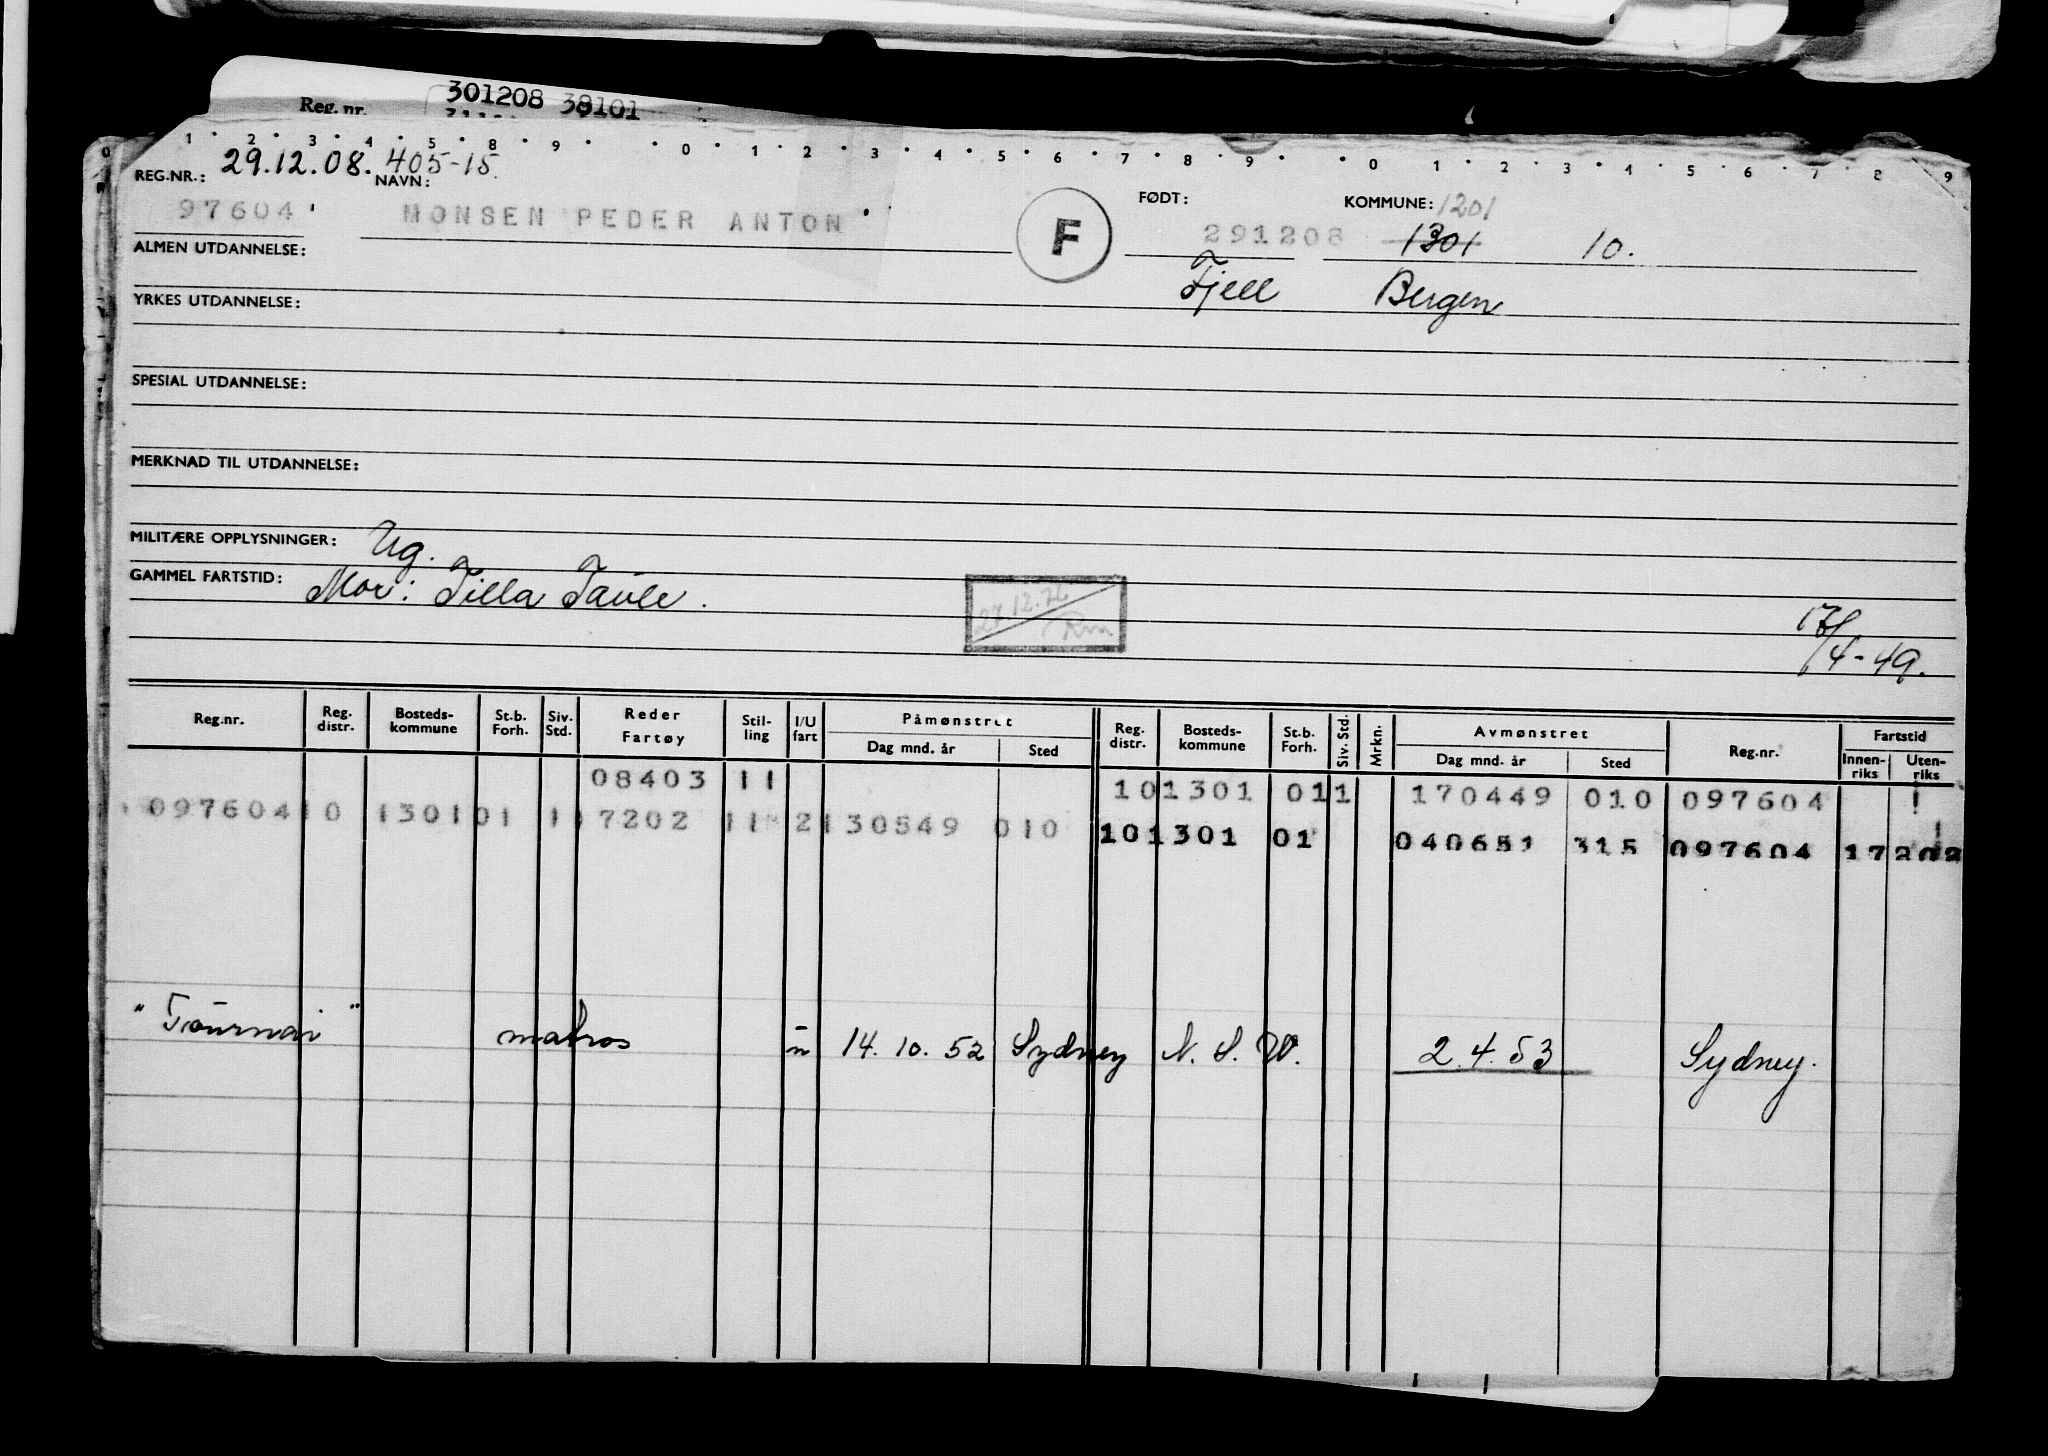 Reg. nr. 301208 38101
0 1 2 3 4 5 8 9 0 1 2 3 4 5 6 7 8 9 0 1 2 3 4 5 6 7 8 9
REG.NR.: 29.12.08. 405-15 NAVN: FØDT: KOMMUNE: 1201
97604 MONSEN PEDER ANTON F 291208 1301 10.
ALMEN UTDANNELSE: Fjell Bergen
YRKES UTDANNELSE:
SPESIAL UTDANNELSE:
MERKNAD TIL UTDANNELSE:
MILITÆRE OPPLYSNINGER: Ug.
GAMMEL FARTSTID: Mor: Tilla Taule.
27.12.76
/4-49.
Reg.nr. Reg. distr. Bosteds- kommune St.b. Forh. Siv. Std. Reder Fartøy Stil- ling I/U fart Påmønstret Dag mnd. år Sted Reg. distr. Bosteds- kommune St.b. Forh. Siv. Std. Mrkn. Avmønstret Dag mnd. år Sted Reg.nr. Fartstid Innen- riks Uten- riks
08403 11 101301 011 170449 010 097604
097604 10 1301 01 1 17202 11 2 130549 010 101301 01 040651 315 097604 17202
"Tournai" matros u 14.10.52 Sydney N.S.W. 2.4.53 Sydney.